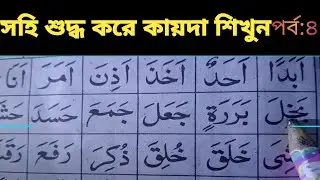 সহি শুদ্ধ করে কায়দা শিখুন পর্ব:৪
اَبَدًا اَحَدٌ اَخَذَ اَذِنَ اَمَرَ اَنَا
بَخِلَ بَرَرَةٍ جَعَلَ جَمَعَ حَسَدَ
خَلَقَ خُلِقَ ذُكِرَ رَفَعَ